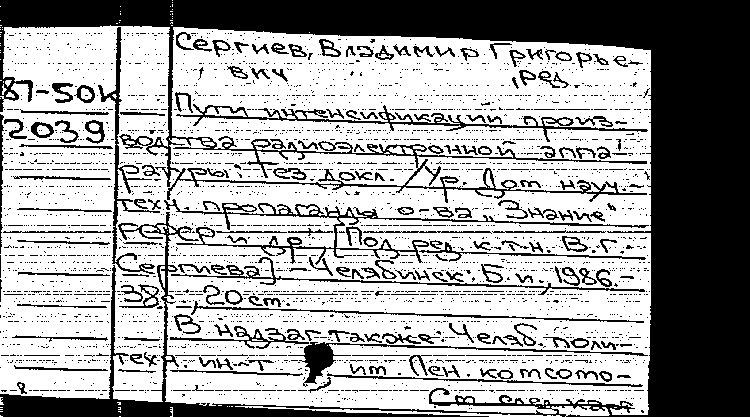 Сергиев, Владимир Григорье-
вич, ред.
87-50к
2039
Пути интенсификации произ-
водства радиоэлектронной аппа-
ратуры: Тез. докл. / Ур. Дом науч.-
техн. пропаганды о-ва „Знание"
РСФСР и др., [Под ред. к.т.н. В.Г.
Сергиева]. - Челябинск: Б.и., 1986.-
38с.; 20 ст.
В надзаг. также: Челяб. поли-
техн. ин-т им. Лен. комсомо-
См. след. карт.